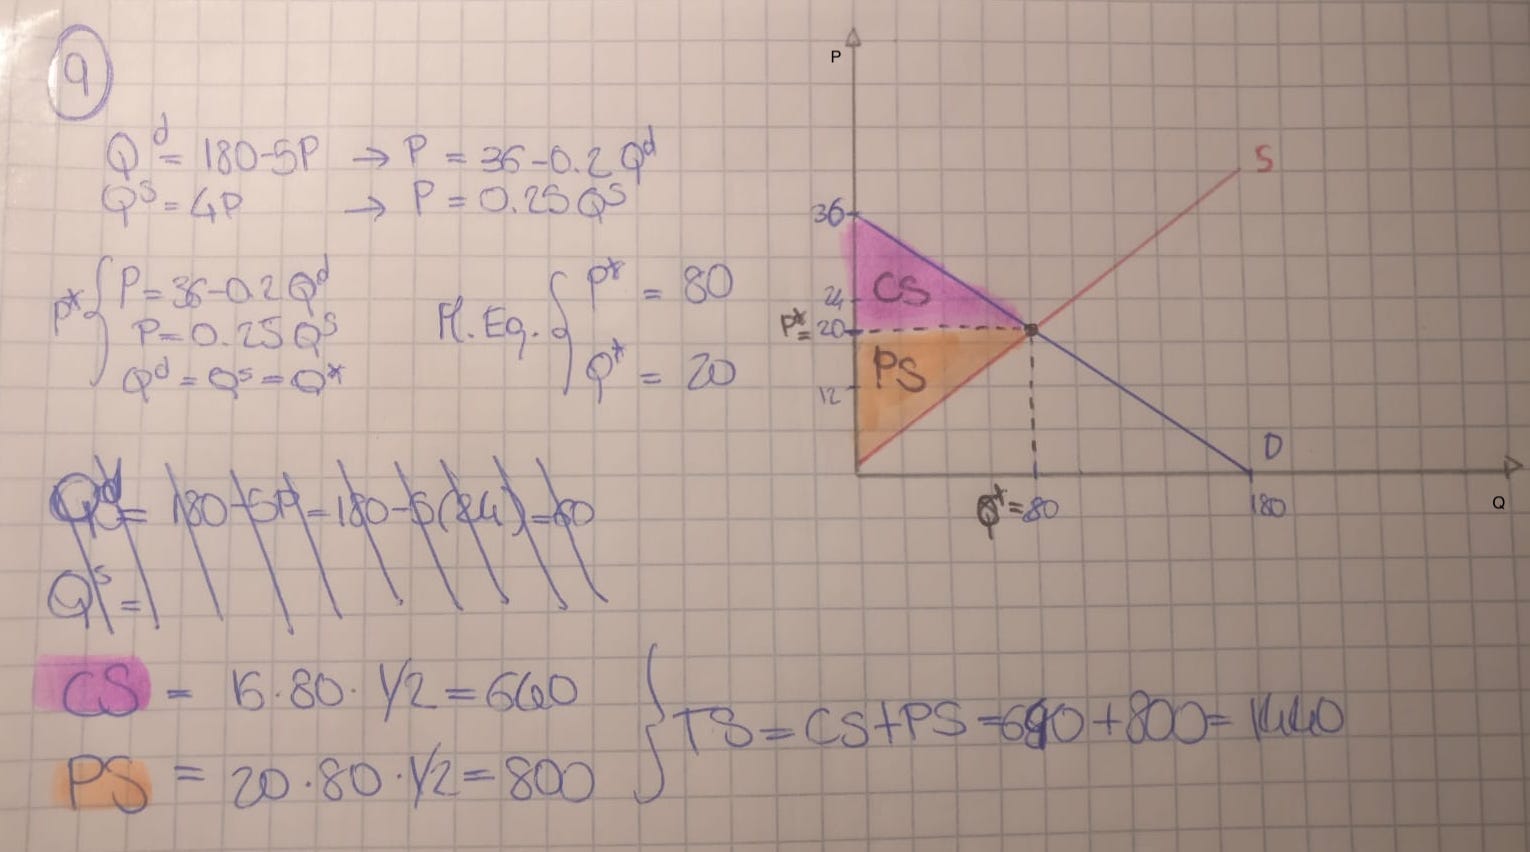 9
Q^d = 180-5P → P = 36-0.2Q^d
Q^s = 4P → P = 0.25Q^s
P* { P = 36-0.2Q^d
P = 0.25Q^s
Q^d = Q^s = Q*
M. Eq. { P* = 80
Q* = 20
Q^d = 180-5P = 180-5(24) = 60
Q^s =
CS = 16·80·1/2 = 640
PS = 20·80·1/2 = 800
} TS = CS+PS = 640+800 = 1440
P
36
24
P* = 20
12
CS
PS
S
D
Q* = 80
180
Q